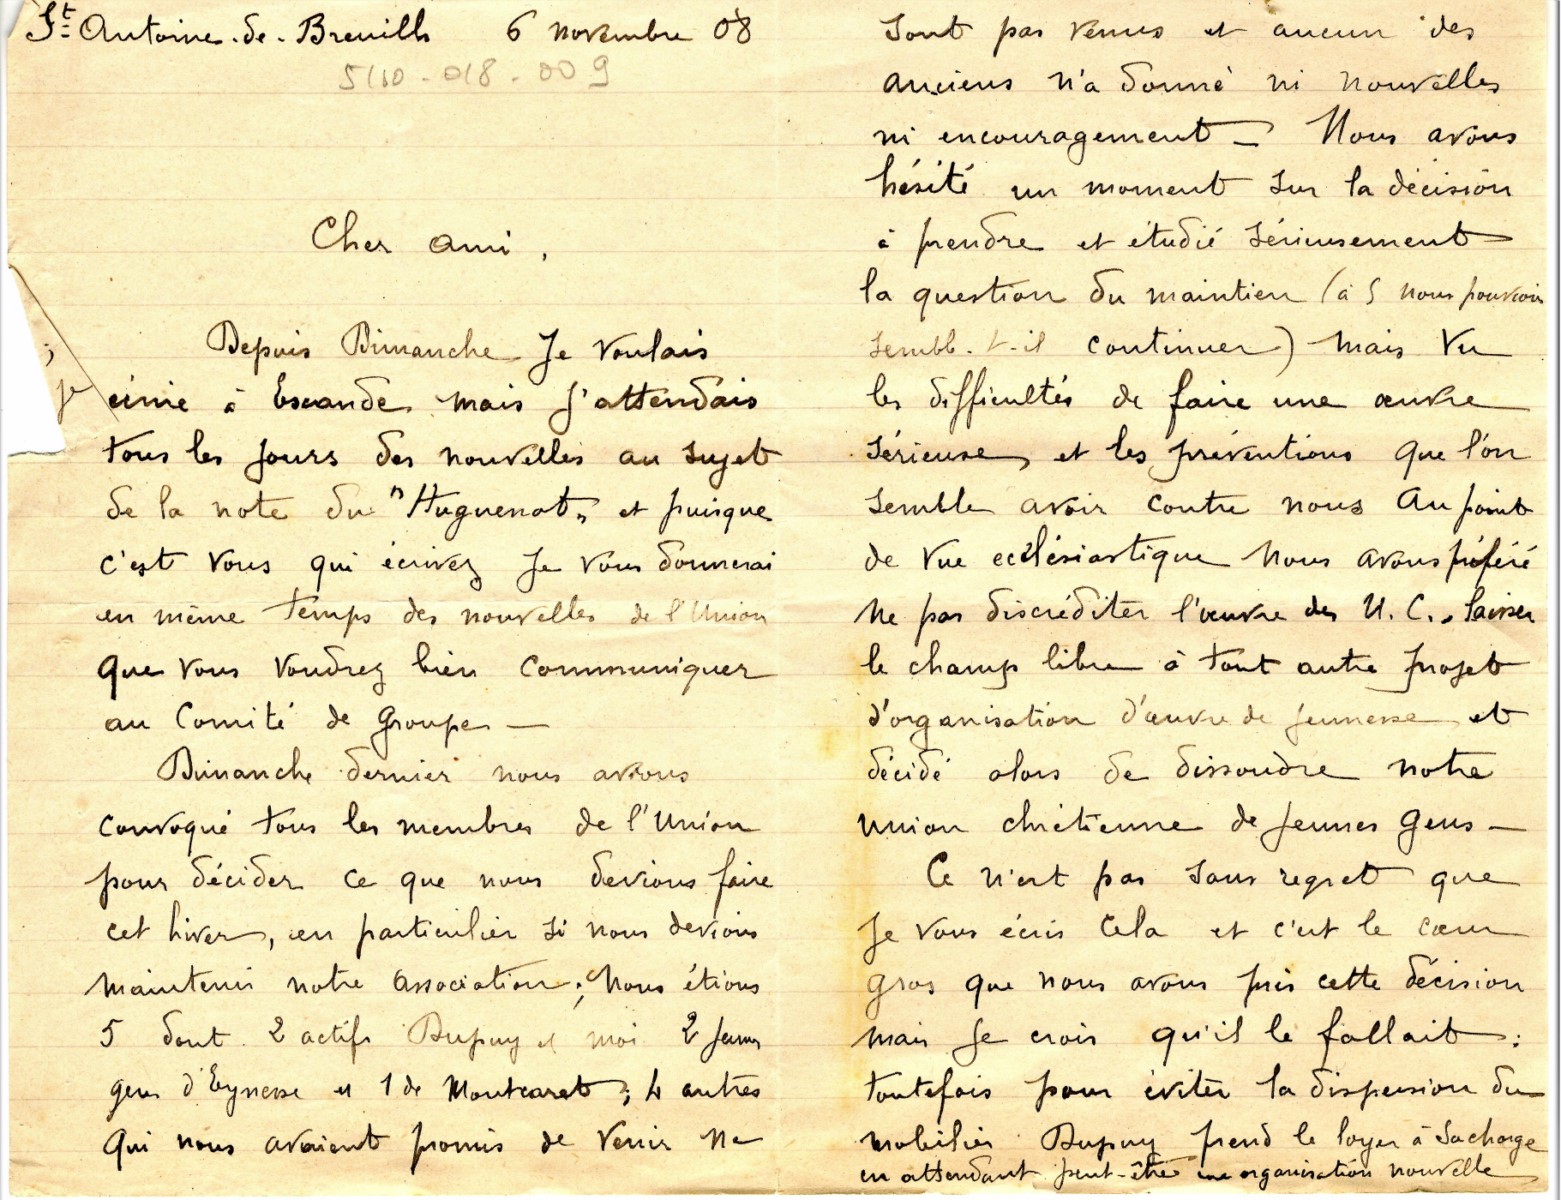 St Antoine-de-Breuilh 6 novembre 08
5110-018-009
Cher ami,
Depuis Dimanche je voulais
écrire à Escande mais j'attendais
tous les jours des nouvelles au sujet
de la note du "Huguenot" et puisque
c'est vous qui écrivez je vous donnerai
en même temps des nouvelles de l'Union
que vous voudrez bien communiquer
au Comité de Groupe —
Dimanche dernier nous avons
convoqué tous les membres de l'Union
pour décider ce que nous devions faire
cet hiver, en particulier si nous devions
maintenir notre association; Nous étions
5 dont 2 actifs Dupuy et moi 2 jeunes
gens d'Eynesse et 1 de Montcaret; 4 autres
qui nous avaient promis de venir ne
sont pas venus et aucun des
anciens n'a donné ni nouvelles
ni encouragement — Nous avons
hésité un moment sur la décision
à prendre et étudié sérieusement
la question du maintien (à 5 nous pouvions
sembl-t-il continuer) mais vu
les difficultés de faire une œuvre
sérieuse, et les préventions que l'on
semble avoir contre nous au point
de vue ecclésiastique nous avons préféré
ne pas discréditer l'œuvre des U.C., laisser
le champ libre à tout autre projet
d'organisation d'œuvre de jeunesse et
décidé alors de dissoudre notre
union chrétienne de jeunes gens —
Ce n'est pas sans regret que
je vous écris cela et c'est le cœur
gros que nous avons pris cette décision
mais je crois qu'il le fallait :
toutefois pour éviter la dispersion du
mobilier Dupuy prend le loyer à sa charge
en attendant peut-être une organisation nouvelle